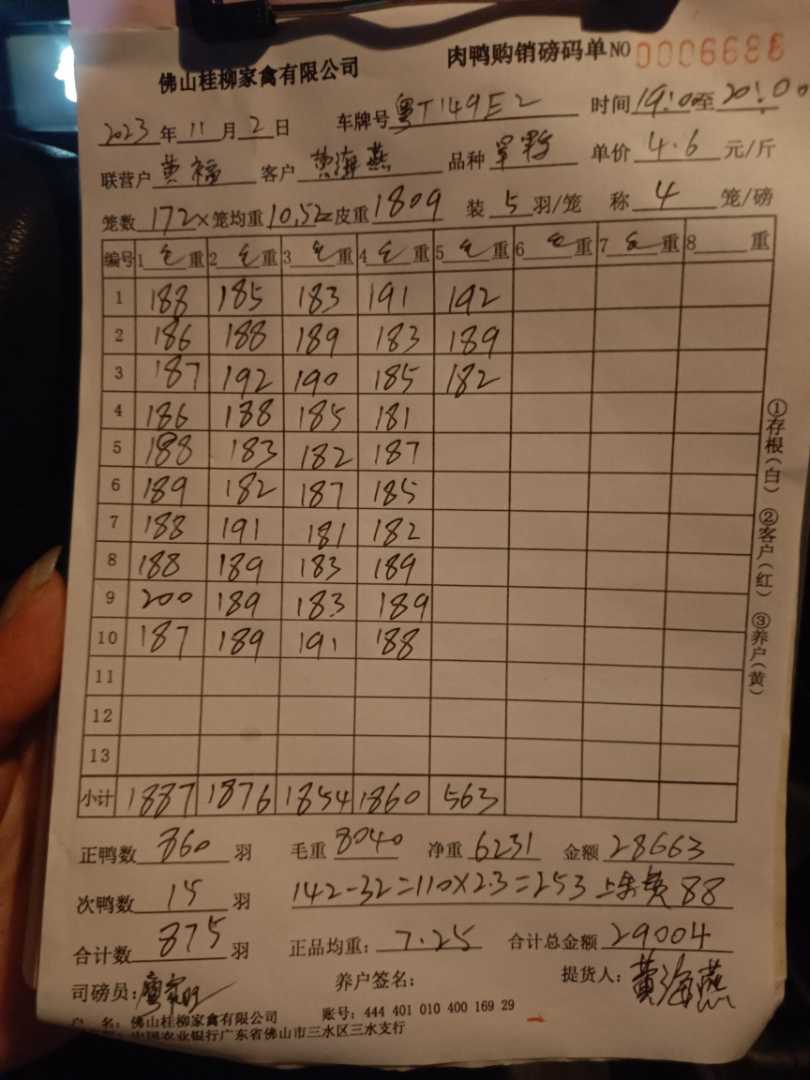 佛山桂柳家禽有限公司 肉鸭购销磅码单 NO 0006688
2023年11月2日 车牌号 粤T149E2 时间19:00至20:00
联营户 黄福 客户 黄海燕 品种 单价 4.6 元/斤
笼数 172×笼均重 10.52=皮重 1809 装 5 羽/笼 称 4 笼/磅
编号 1 毛重 2 毛重 3 毛重 4 毛重 5 毛重 6 毛重 7 毛重 8 重
1 188 185 183 191 192
2 186 188 189 183 189
3 187 192 190 185 182
4 186 188 185 181
5 188 183 182 187
6 189 182 187 185
7 188 191 181 182
8 188 189 183 189
9 200 189 183 189
10 187 189 191 188
11
12
13
小计 1887 1876 1854 1860 563
正鸭数 860 羽 毛重 8040 净重 6231 金额 28663
次鸭数 15 羽 142-32=110×2.3=253 88
合计数 875 羽 正品均重: 7.25 合计总金额 29004
司磅员: 养户签名: 提货人: 黄海燕
户 名: 佛山桂柳家禽有限公司 账号: 444 401 010 400 169 29
中国农业银行广东省佛山市三水区三水支行
①存根(白) ②客户(红) ③养户(黄)